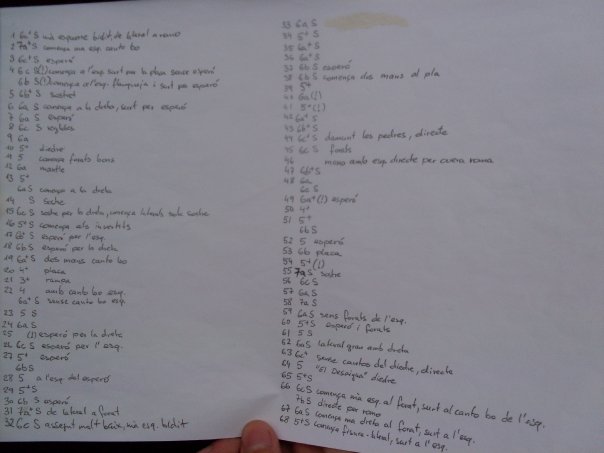 1 6a+ S mà esquerra bidit de lateral a romo
2 7a+ S comença ma esq. canto bo
3 6c+ S esperó
4 6c S(!) comença a l'esq. surt per la placa sense esperó
6b S(!) comença a l'esq. flanqueja i surt per esperó
5 6b+ S sostret
6 6a S comença a la dreta, surt per esperó
7 6a S esperó
8 6c S regletes
9 6a
10 5+ diedre
11 5 comença forats bons
12 6a mantle
13 5+
6a S comença a la dreta
14 S sostre
15 6c S sostre per la dreta, comença laterals sota sostre
16 5+ S comença als invertits
17 6b+ S esperó per l'esq.
18 6b S esperó per la dreta
19 6a+ S dos mans canto bo
20 4+ placa
21 3+ rampa
22 4 amb canto bo esq.
6a+ S sense canto bo esq.
23 5 S
24 6a S
25 (!) esperó per la dreta
26 6c S esperó per l'esq.
27 5+ esperó
6b S
28 5 a l'esq del esperó
29 5+ S
30 6b S esperó
31 7a+ S de lateral a forat
32 6c S assegut molt baix, mà esq. bidit
33 6a S
34 5+ S
35 6a+ S
36 6a+ S
37 6b S esperó
38 6b S comença dos mans al pla
39 5+
40 6a (!)
41 5+ (!)
42 6a+ S
43 6b+ S
44 6c+ S damunt les pedres, directe
45 6c S forats
46 mono amb esq. directe per cueva romo
47 6b+ S
48 6a
6c S
49 6a+ (!) esperó
50 4+
51 5+
6b S
52 5 esperó
53 6b placa
54 5+ (!)
55 7a S sostre
56 6c S
57 6a S
58 7a S
59 6a S sens forats de l'esq.
60 5+ S esperó i forats
61 5 S
62 6a S lateral gran amb dreta
63 6c+ sense cantos del diedre, directe
64 5 "El Desaigua" diedre
65 5+ S
66 6c S comença mà esq. al forat, surt al canto bo de l'esq.
7b S directe per romo
67 6a S comença ma dreta al forat, surt a l'esq.
68 5+ S comença fisura-lateral, surt a l'esq.